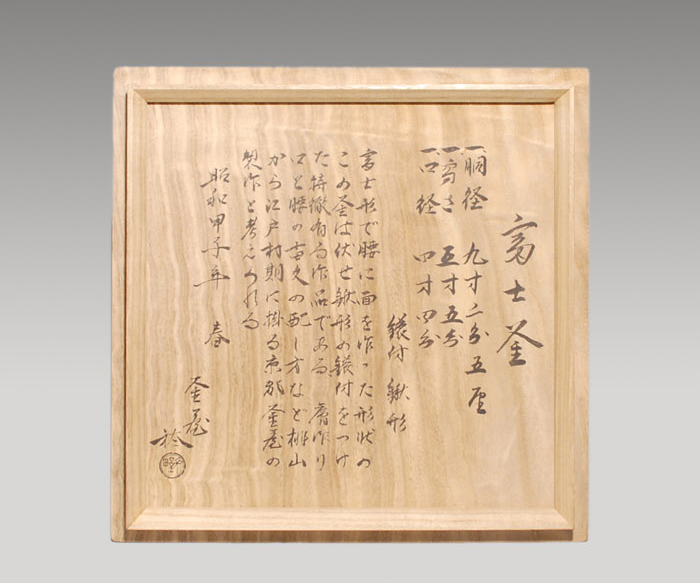 富士釜
一、胴径 九寸二分五厘
一、高さ 五寸五分
一、口径 四寸四分
鐶付 鍬形
富士形で腰に面を作った形状の
この釜は伏せ鍬形の鐶付をつけ
た特徴有る作品である 膚作り
口と腰の
の配し方など桃山
から江戸初期に掛る京都釜屋の
製作と考えられる
昭和甲子年 春
釜屋